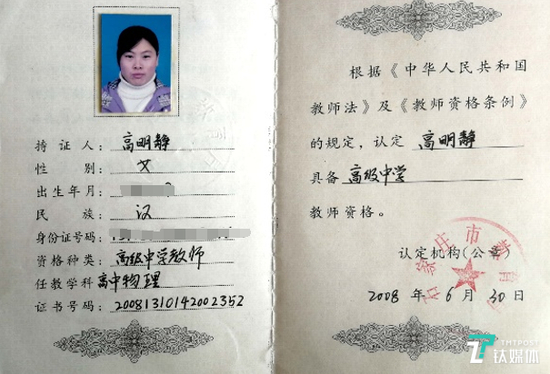 持证人：高明静
性别 女
出生年月：
民族 汉
身份证号码：
资格种类：高级中学教师
任教学科 高中物理
证书号码：20081310142002352
根据《中华人民共和国
教师法》及《教师资格条例》
的规定，认定 高明静
具备 高级中学
教师资格。
认定机构(公章)
2008 年 6 月 30 日
TMTPOST
钛媒体